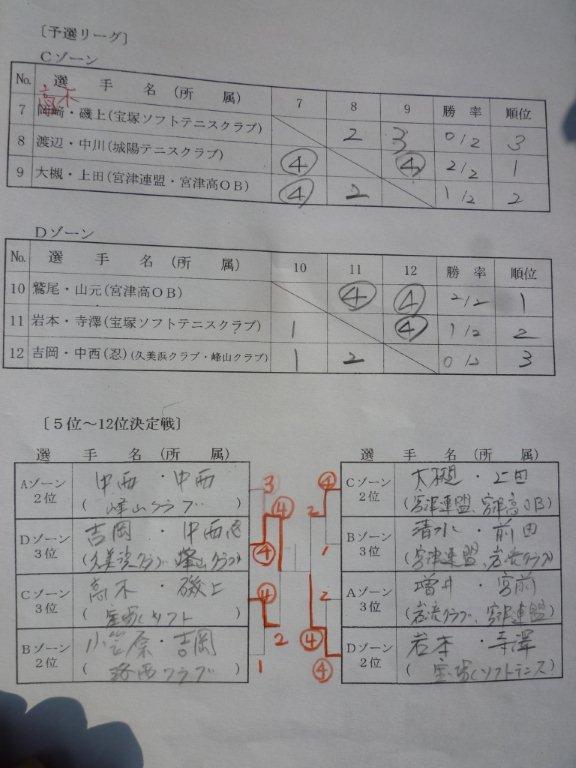 ［予選リーグ］
Cゾーン
No. 選 手 名（所 属） 7 8 9 勝 率 順位
高木
7 岡崎・磯上(宝塚ソフトテニスクラブ) 2 3 0/2 3
8 渡辺・中川(城陽テニスクラブ) ④ ④ 2/2 1
9 大槻・上田(宮津連盟・宮津高OB) ④ 2 1/2 2
Dゾーン
No. 選 手 名（所 属） 10 11 12 勝 率 順位
10 鷲尾・山元(宮津高OB) ④ ④ 2/2 1
11 岩本・寺澤(宝塚ソフトテニスクラブ) 1 ④ 1/2 2
12 吉岡・中西(忍)(久美浜クラブ・峰山クラブ) 1 2 0/2 3
［５位～12位決定戦］
選 手 名（所 属） 選 手 名（所 属）
Aゾーン 2位 中西・中西
(峰山クラブ)
3
Dゾーン 3位 吉岡・中西忍
(久美浜クラブ 峰山クラブ)
④ ④
Cゾーン 3位 高木・磯上
④
Bゾーン 2位 小笠原・吉岡
1 2
Cゾーン 2位 大槻・上田
(宮津連盟、宮津高OB)
④ 2
Bゾーン 3位 清水・前田
1
Aゾーン 3位 増井・宮前
2
Dゾーン 2位 岩本・寺澤
④ ④